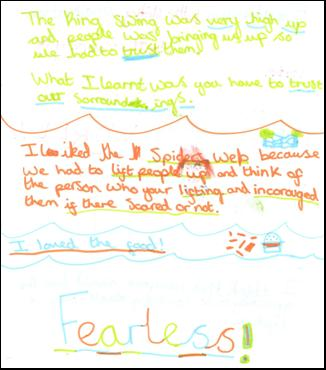 The King Swing was very high up
and people was bringing us up so
we had to trust them!
What I learnt was you have to trust
our sorroundings.
I liked the Spider Web because
we had to lift people up and think of
the person who your lifting and incouraged
them if there scared or not.
I loved the food!
Fearless!